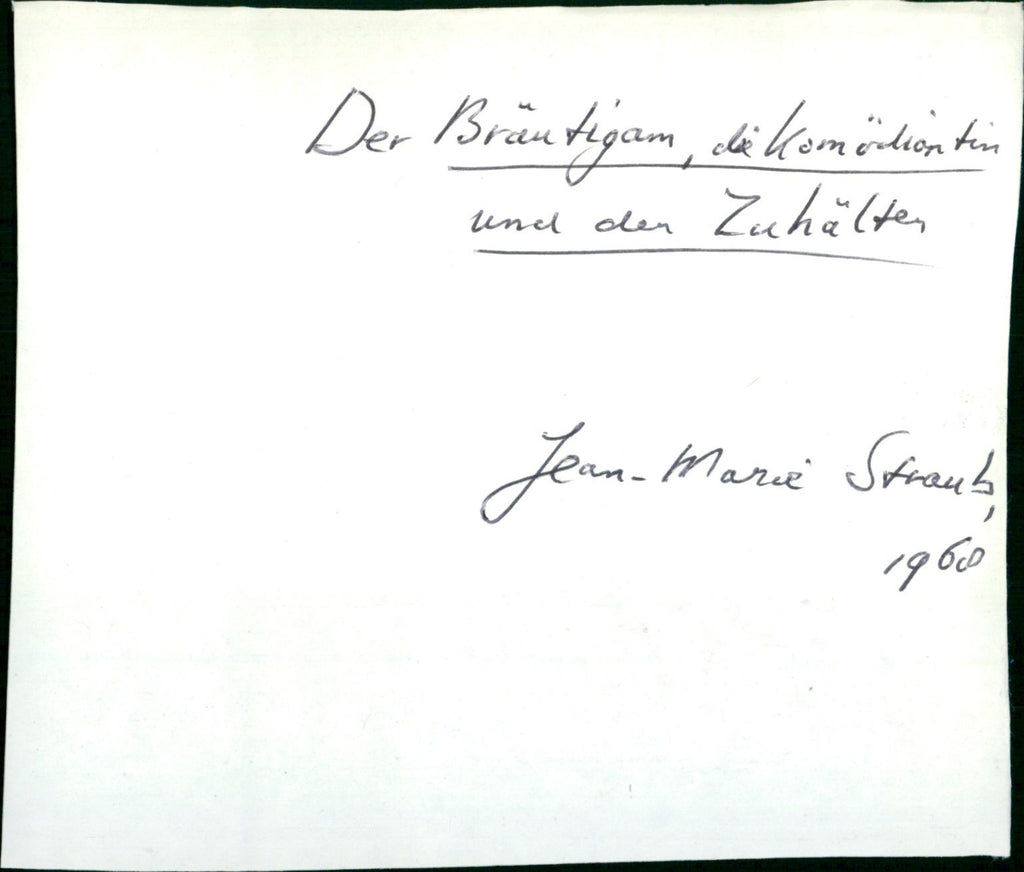 Der Bräutigam, die Komödiantin
und der Zuhälter
Jean-Marie Straub,
1968